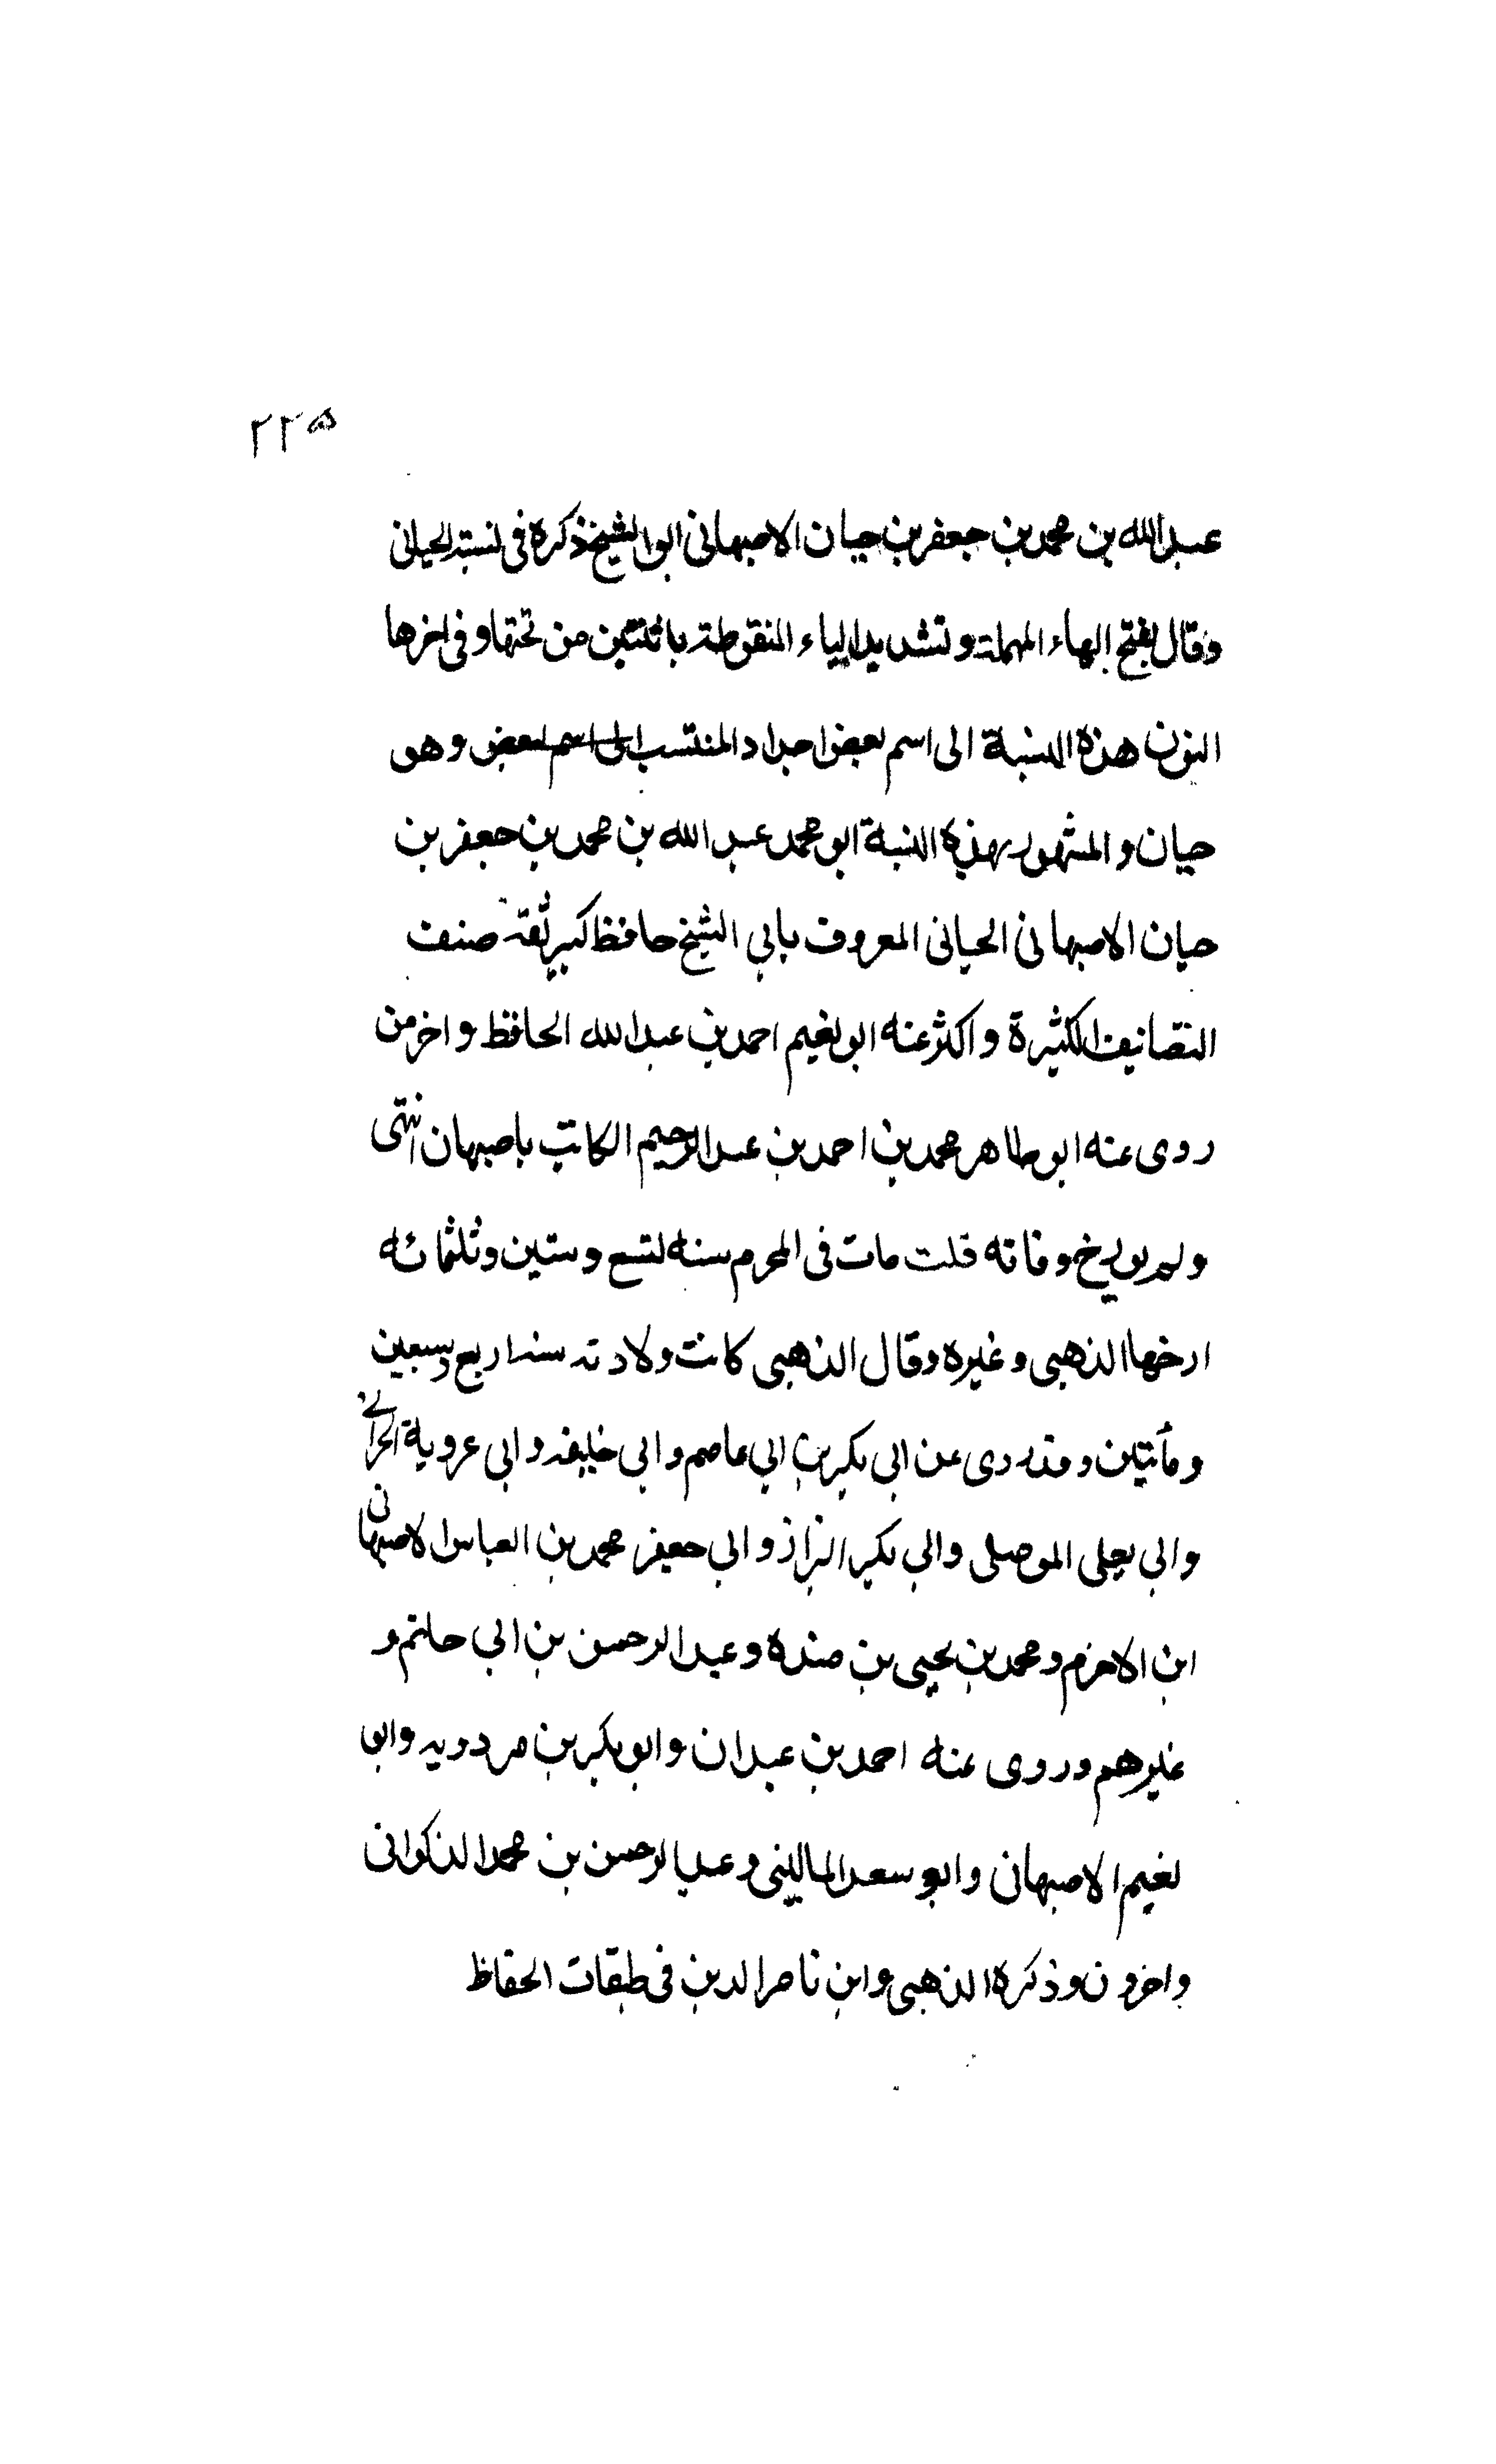 ٢٢٥
عبدالله بن محمد بن جعفر بن حيان الاصبهانى ابو الشيخ ذكره فى نسبته الحيانى
وقال بفتح الهاء المهملة وتشديد الياء المنقوطة باثنتين من تحتها وفى اخرها
النون هذه النسبة الى اسم بعض اجداد المنتسب الى اسم بعض وهو
حيان والمشهور بهذه النسبة ابو محمد عبد الله بن محمد بن جعفر بن
حيان الاصبهانى الحيانى المعروف بابي الشيخ حافظ كبير ثقة صنف
التصانيف الكثيرة واكثر عنه ابو نعيم احمد بن عبد الله الحافظ واخر من
روى عنه ابو طاهر محمد بن احمد بن عبد الرحيم الكاتب باصبهان انتهى
ولم يورخ وفاته قلت مات فى المحرم سنه تسع وستين وثلثمائه
ارخها الذهبى وغيره وقال الذهبى كانت ولادته سنه اربع وسبعين
ومأتين وقد روى عن ابى بكر بن ابي عاصم وابى خليفه وابى عروبة الحرانے
وابى يعلى الموصلى وابي بكر البزاز وابي جعفر محمد بن العباس الاصبهانى
ابن الاخرم ومحمد بن يحيى بن منده وعبد الرحمن بن ابي حاتم و
غيرهم وروى عنه احمد بن عبدان وابو بكر بن مردويه وابو
نعيم الاصبهان وابو سعد المالينى وعبد الرحمن بن محمد الذكوانى
واخرون وذكره الذهبى وابن ناصر الدين فى طبقات الحفاظ